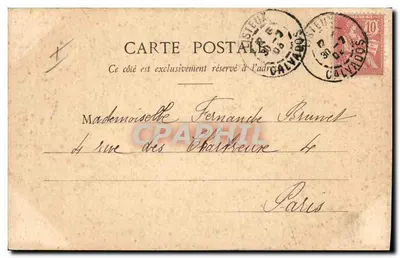 CARTE POSTALE
Ce côté est exclusivement réservé à l'adr
CALVADOS
CALVADOS
10
Mademoiselle Fernande Brunet
4 rue des Chartreux 4
CPAPHIL
Paris